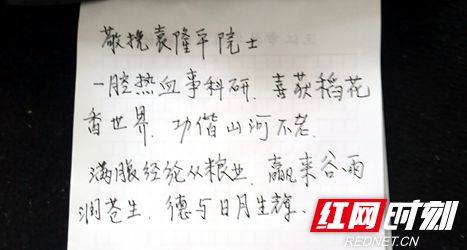 敬挽袁隆平院士
一腔热血事科研.喜获稻花
香世界.功偕山河不老.
满腹经纶从粮业.赢来谷雨
润苍生.德与日月生辉.
红网时刻
REDNET.CN